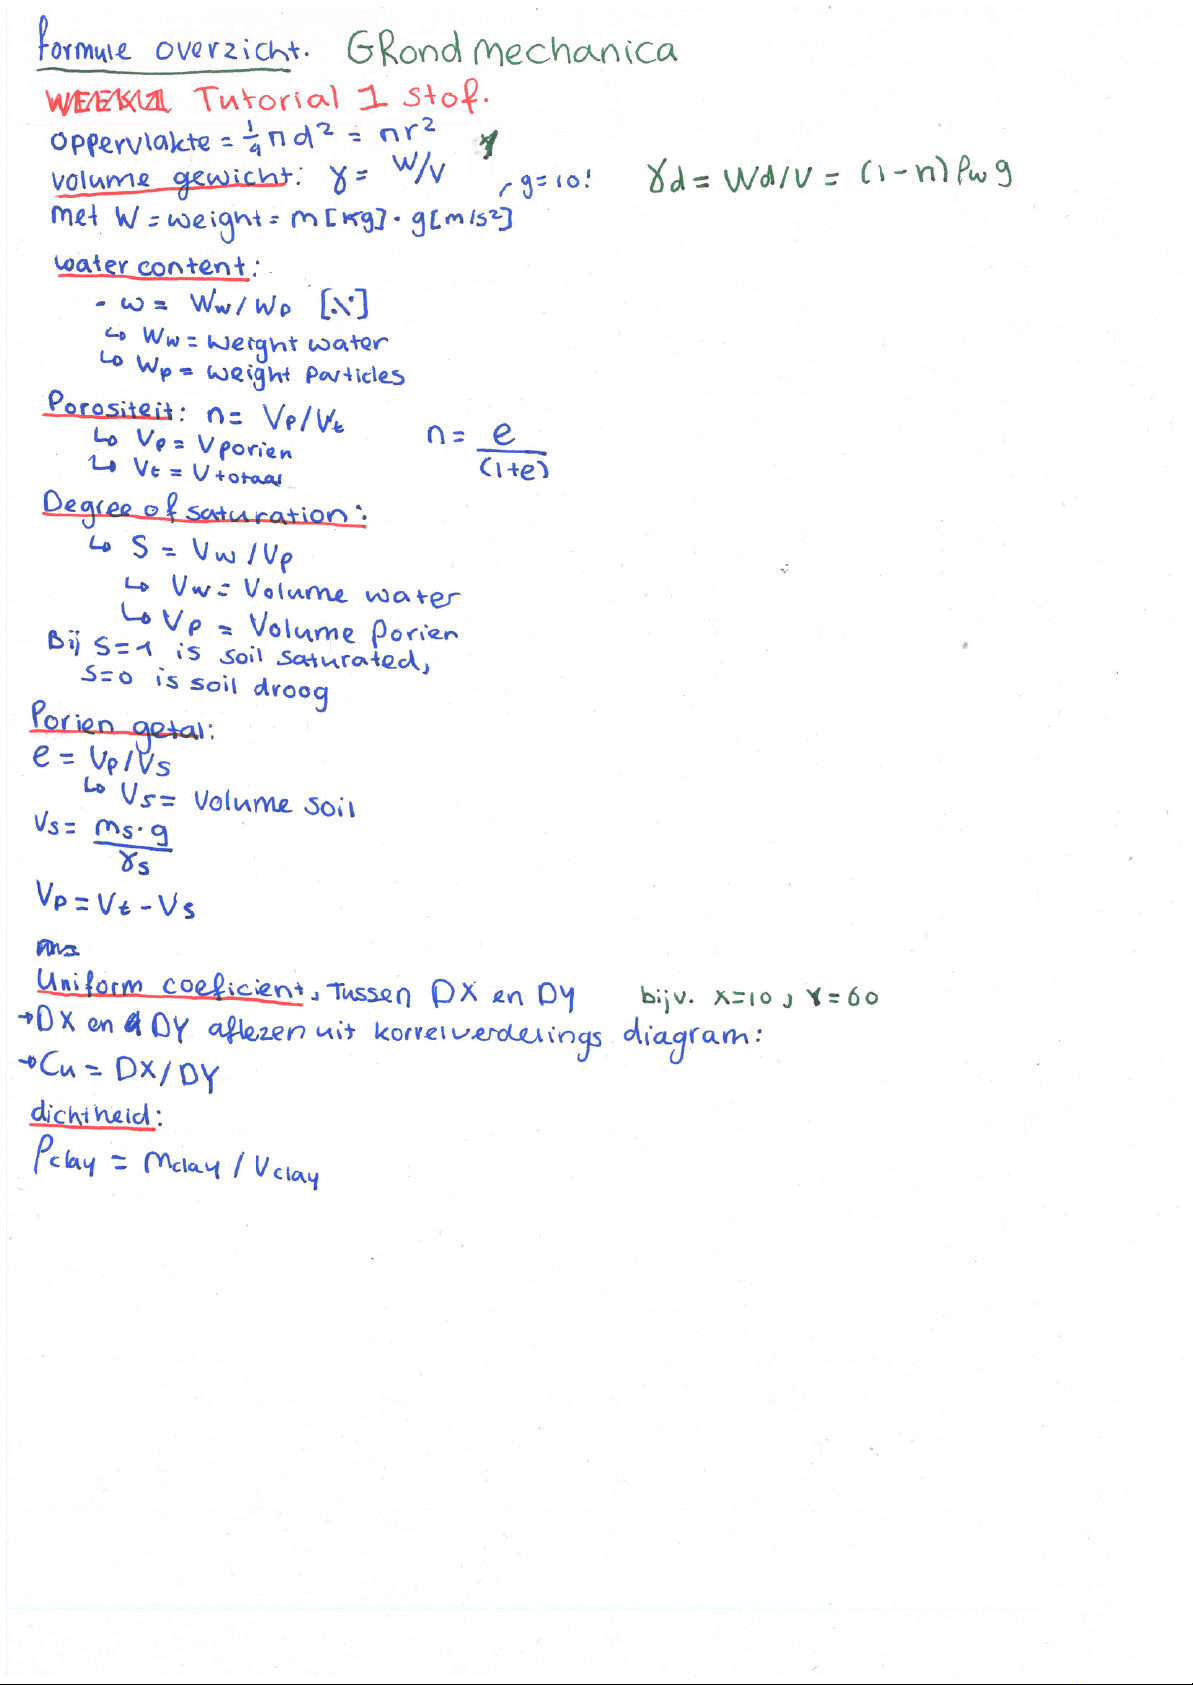 formule overzicht. GRond mechanica
WEEK 1 Tutorial 1 stof.
oppervlakte = 1/4 π d² = πr²
volume gewicht: γ = W/V , g=10! γd = Wd/V = (1-n) ρw g
met W = weight = m [kg] · g [m/s²]
water content:
- w = Ww/Wp [%]
↳ Ww = weight water
↳ Wp = weight particles
Porositeit: n = Vp/Vt n = e/(1+e)
↳ Vp = V porien
↳ Vt = V totaal
Degree of saturation:
↳ S = Vw/Vp
↳ Vw = Volume water
↳ Vp = Volume porien
Bij S=1 is soil saturated,
S=0 is soil droog
Porien getal:
e = Vp/Vs
↳ Vs = Volume soil
Vs = ms·g/γs
Vp = Vt - Vs
ms
Uniform coeficient, Tussen DX en DY bijv. X=10, Y=60
→DX en DY aflezen uit korrelverdelings diagram:
→Cu = DX/DY
dichtheid:
ρclay = mclay / Vclay